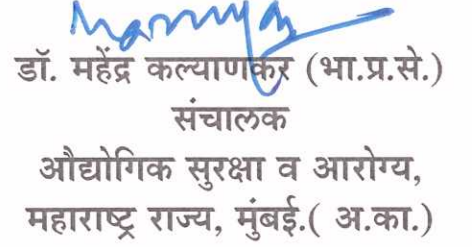 डॉ. महेंद्र कल्याणकर (भा.प्र.से.)
संचालक
औद्योगिक सुरक्षा व आरोग्य,
महाराष्ट्र राज्य, मुंबई.( अ.का.)